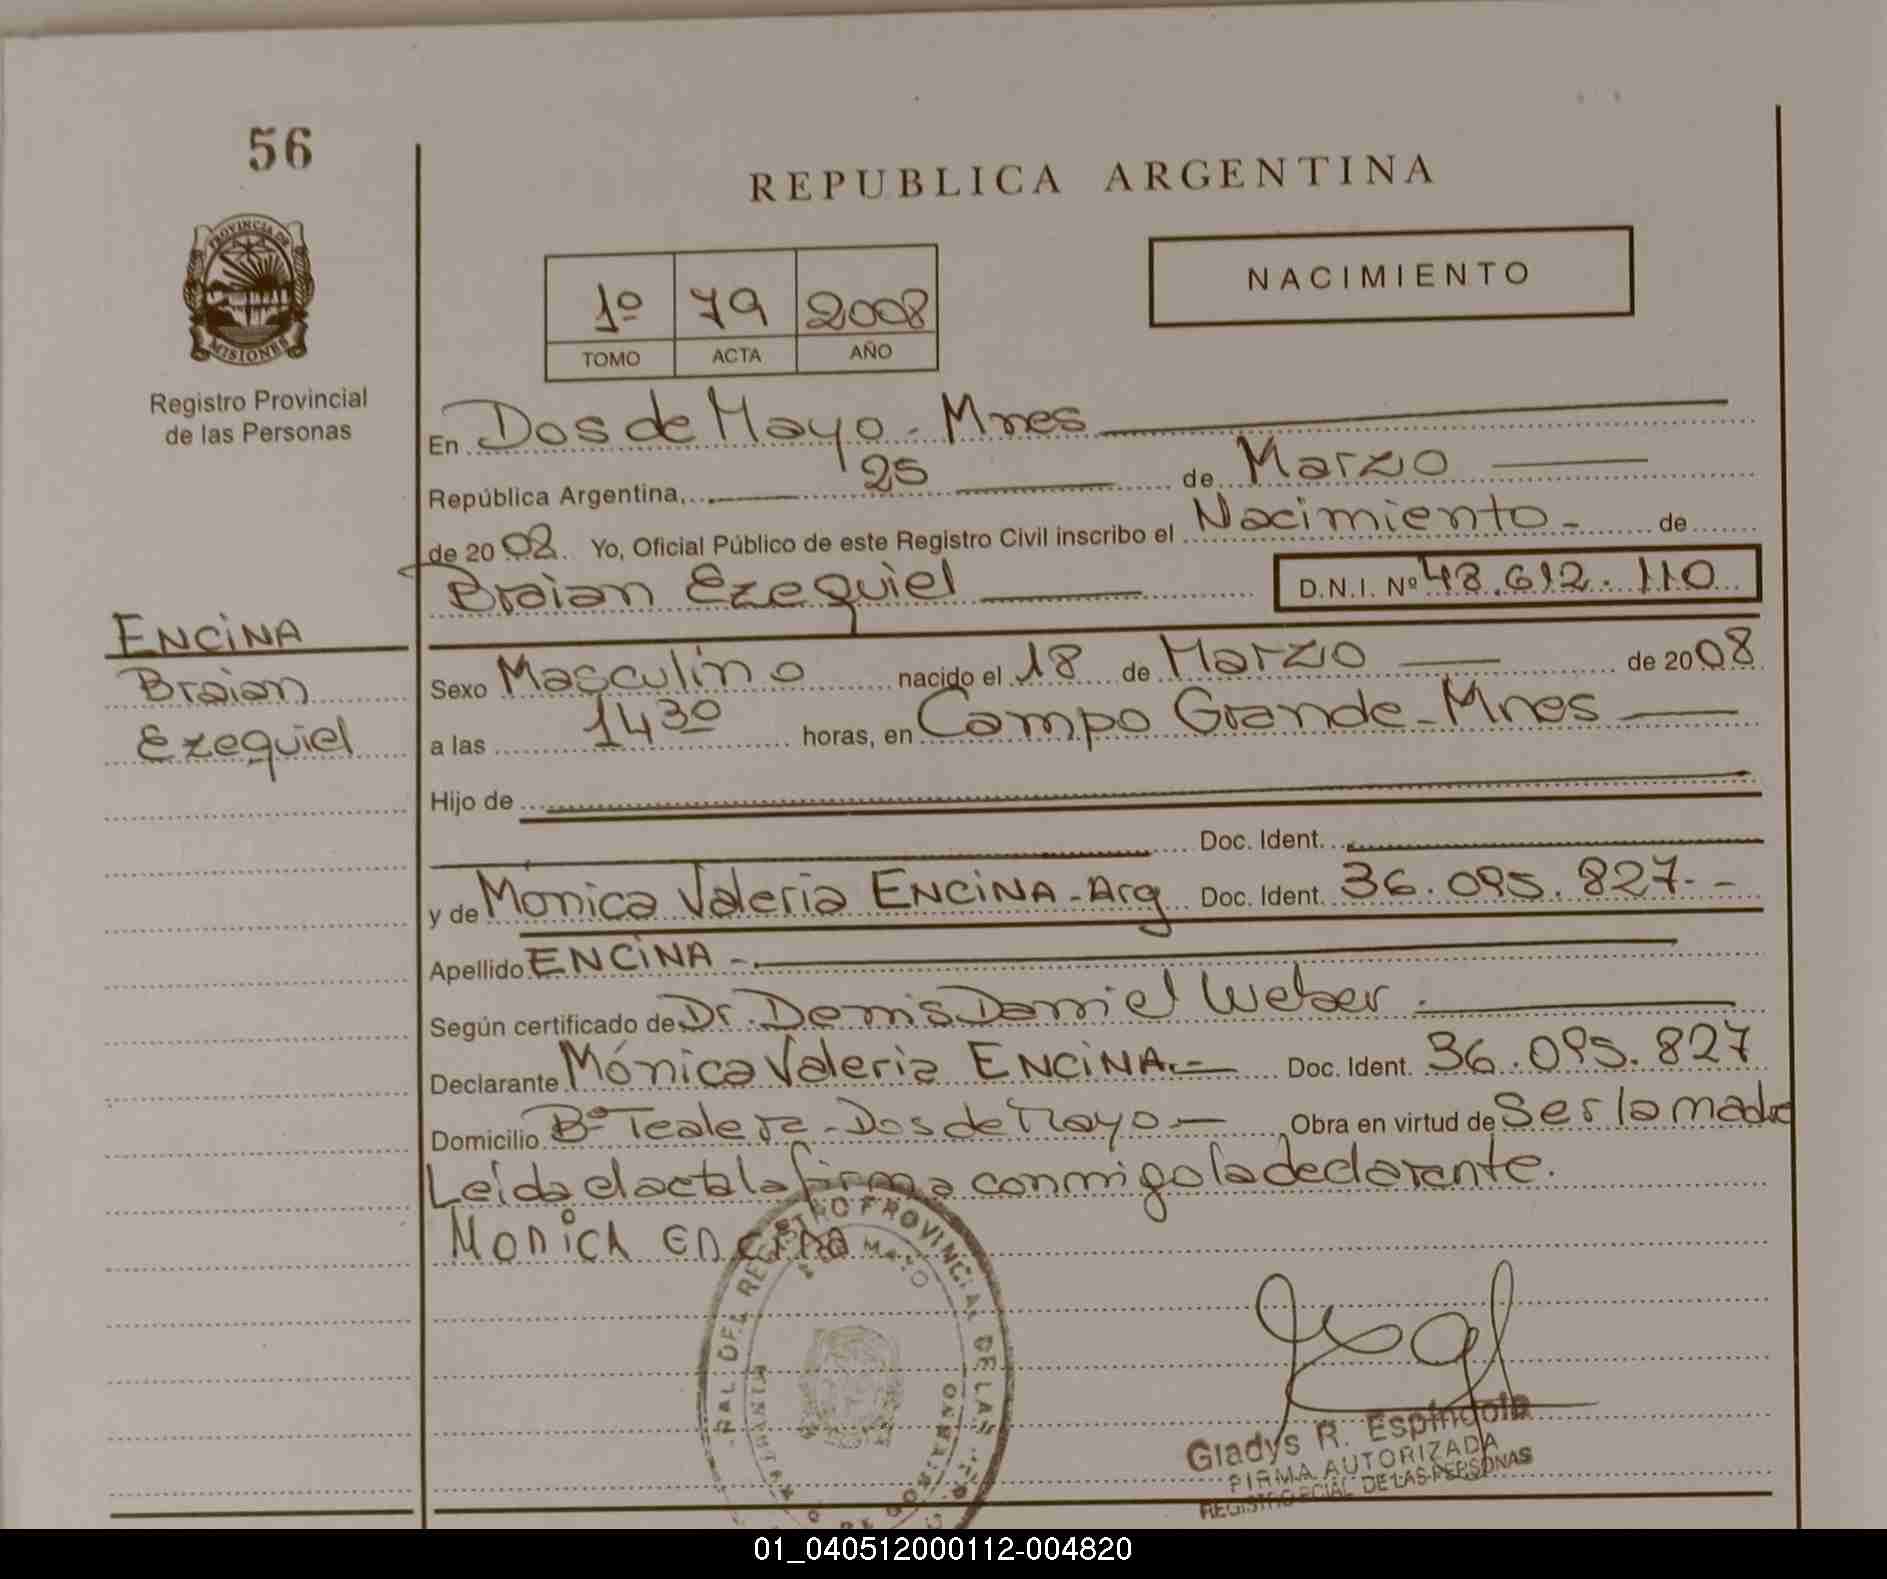 56
REPUBLICA ARGENTINA
PROVINCIA DE
MISIONES
Registro Provincial
de las Personas
1º 79 2008
TOMO ACTA AÑO
NACIMIENTO
En Dos de Mayo - Mnes
República Argentina, 25 de Marzo
de 2008. Yo, Oficial Público de este Registro Civil inscribo el Nacimiento - de
Braian Ezequiel D.N.I. Nº 48.612.110
ENCINA
Braian
Ezequiel
Sexo Masculino nacido el 18 de Marzo de 2008
a las 14 30 horas, en Campo Grande - Mnes
Hijo de
Doc. Ident.
y de Mónica Valeria ENCINA - Arg Doc. Ident. 36.095.827 - -
Apellido ENCINA -
Según certificado de Dr. Denis Daniel Weber .
Declarante Mónica Valeria ENCINA. - Doc. Ident. 36.095.827
Domicilio Bº - Dos de Mayo - Obra en virtud de Ser la madre
Leída el acta la firma conmigo la declarante.
Monica encina
REGISTRO PROVINCIAL DE LAS
MAYO
Gladys R. Espíndola
FIRMA AUTORIZADA
REGISTRO PCIAL DE LAS PERSONAS
01_040512000112-004820